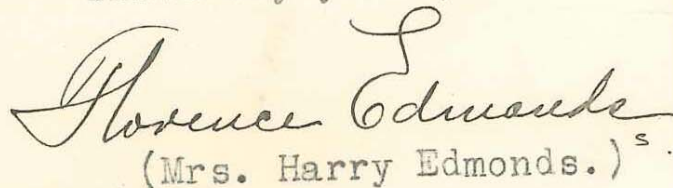 Florence Edmonds
(Mrs. Harry Edmonds.) s.